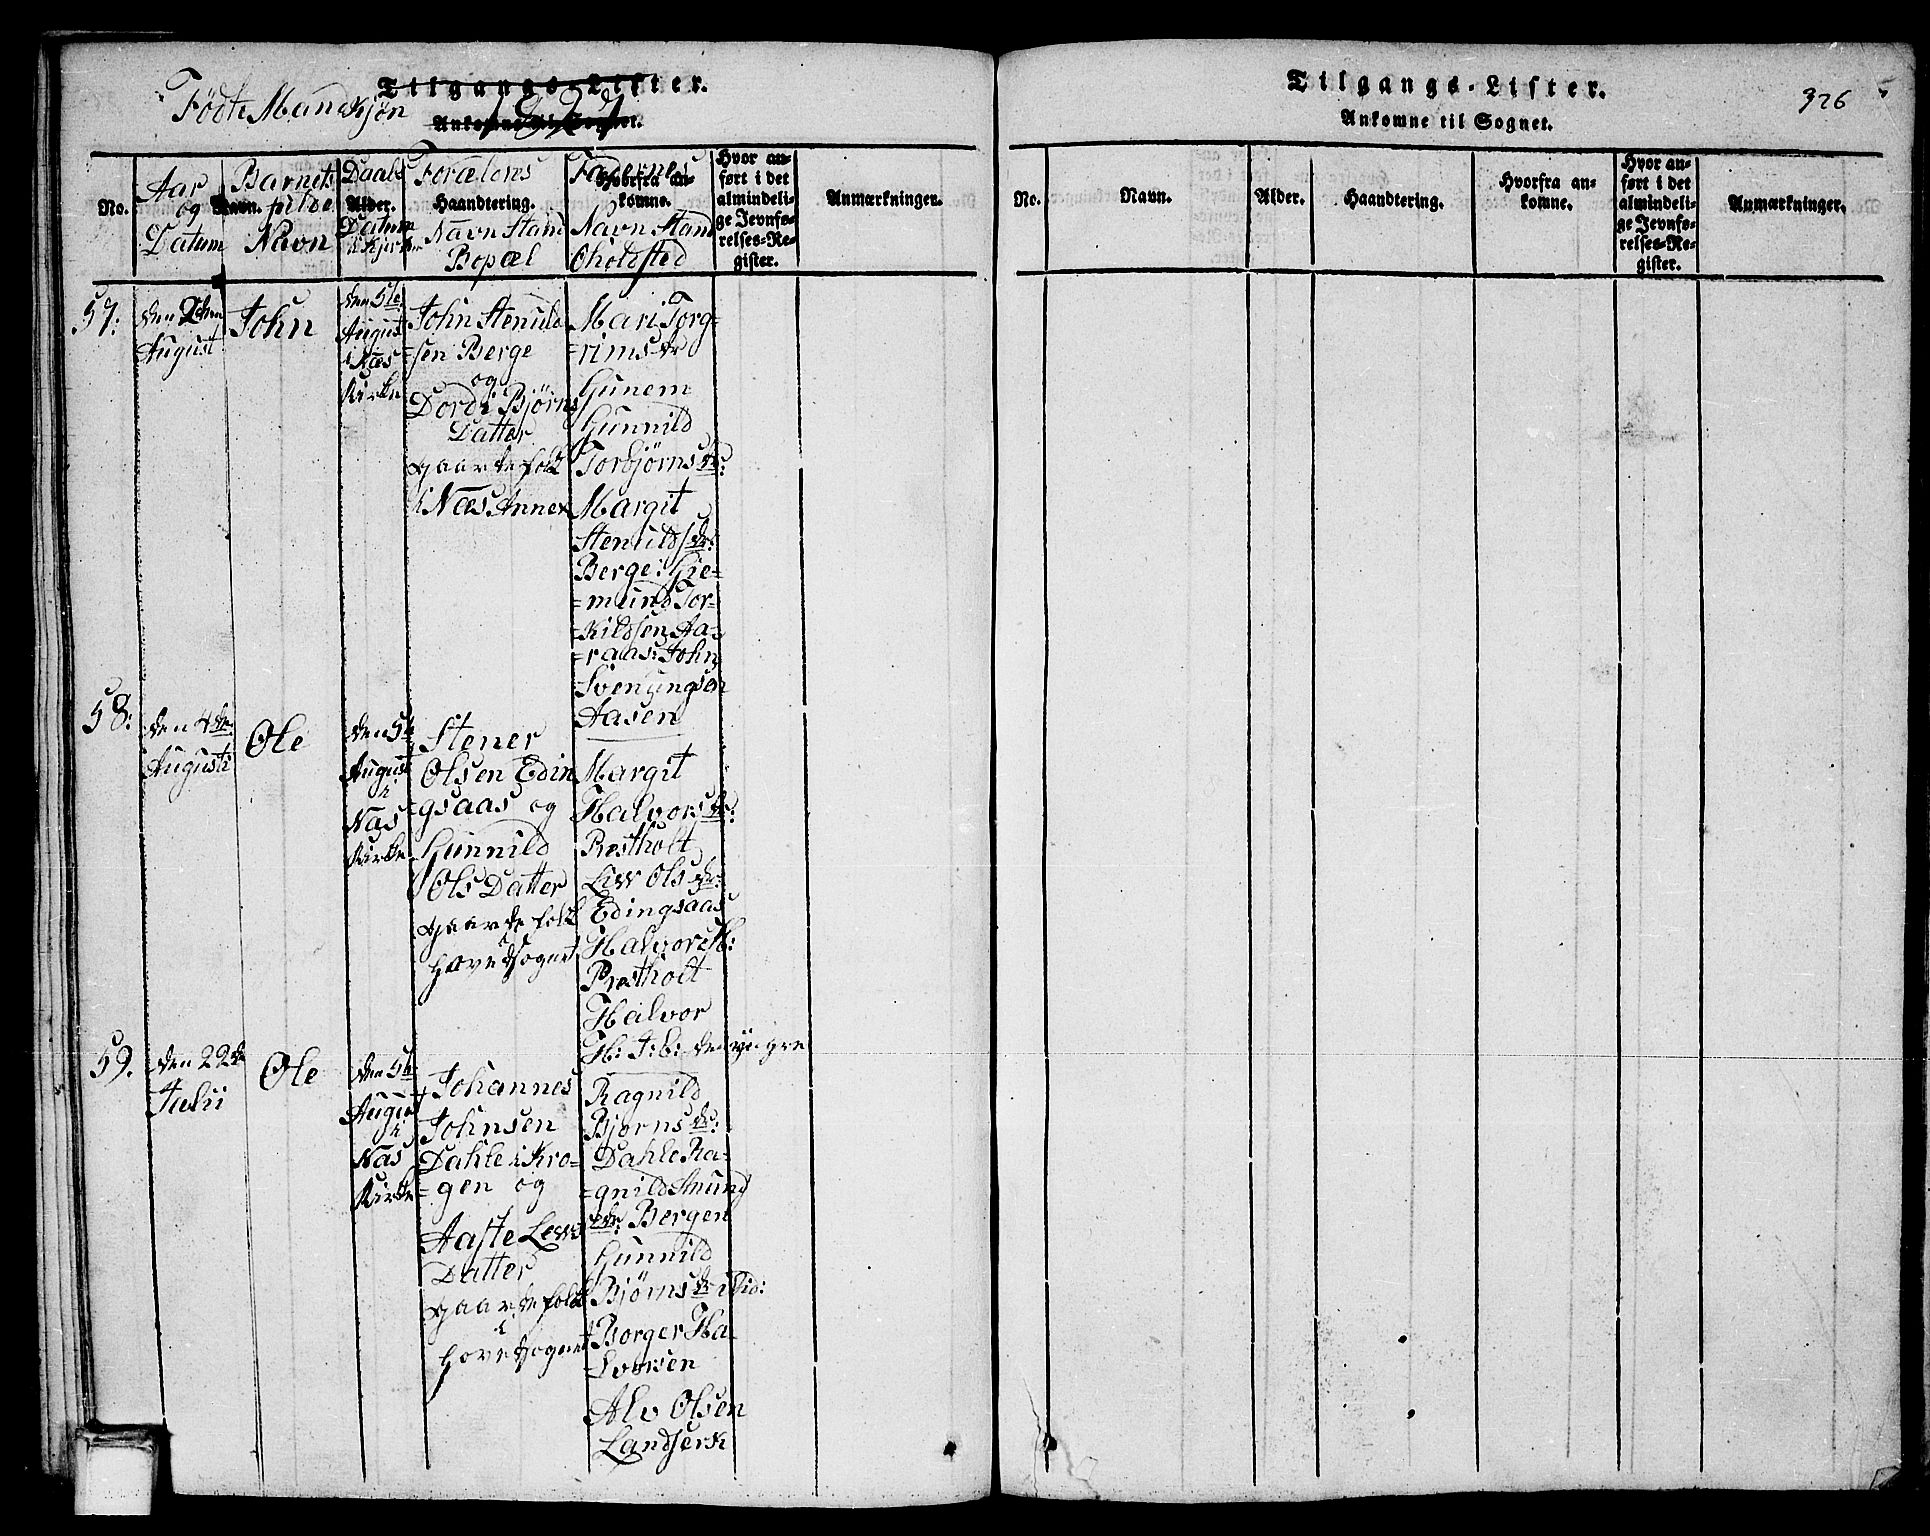 Tilgangs-Lister.
Födte Mandkjön
Ankomne til Sognet.
No.
Aar
og
Datum
Barnets
Navn. fulde
Navn
Daabs
Alder.
Datum
i Kjerken
Forælors
Haandtering.
Navn Stand
Bopæl
Faddernes
Hvorfra an-
komne.
Navn Stand
Oholdsted
Hvor an-
ført i det
almindeli-
ge Jevnfø-
relses-Re-
gister.
Anmærkninger.
57:
den 2den
August
John
den 5te
August
i Næs
Kirke
John Stenuld
=sen Berge
og
Dordi Bjørns
Datter
Gaardefolk
i Næs Annex
Mari Torg-
=rims dr
Gunem
Gunnild
Torbjørns dr:
Margit
Stenulds dr:
Berge: Gie-
=mund Tor-
=kildsen Aa-
=raas: John
Svenungsøn
Aasen
58:
den 4de
Augusti
Ole
den 5te
August
i
Nas
Kirke
Stener
Olsen Edin
=gsaas og
Gunnild
Ols Datter
Gaardefolk
i
Hovedsognet
Margit
Halvors dr:
Præstholt
Liw Ols dr:
Edingsaas
Halvor H:
Præstholt
Halvor
H: I: b: den yngre
59.
den 22de
Julii
Ole
den 5te
August
i
Nas
Kirke
Johannes
Johnsen
Dahle i Kro-
=gen og
Aaste Lews
Datter
Gaardefolk
i
Hovedsognet
Ragnild
Bjørns dr:
Dahle Ra-
=gnild Amund
dr: Bergen
Gunnild
Bjørns dr ibid:
Borger Ha-
lvorsen
Alv Olsen
Landsverk
Tilgangs-Lister.
326
Ankomne til Sognet.
No.
Navn.
Alder.
Haandtering.
Hvorfra an-
komne.
Hvor an-
ført i det
almindeli-
ge Jevnfø-
relses-Re-
gister.
Anmærkninger.